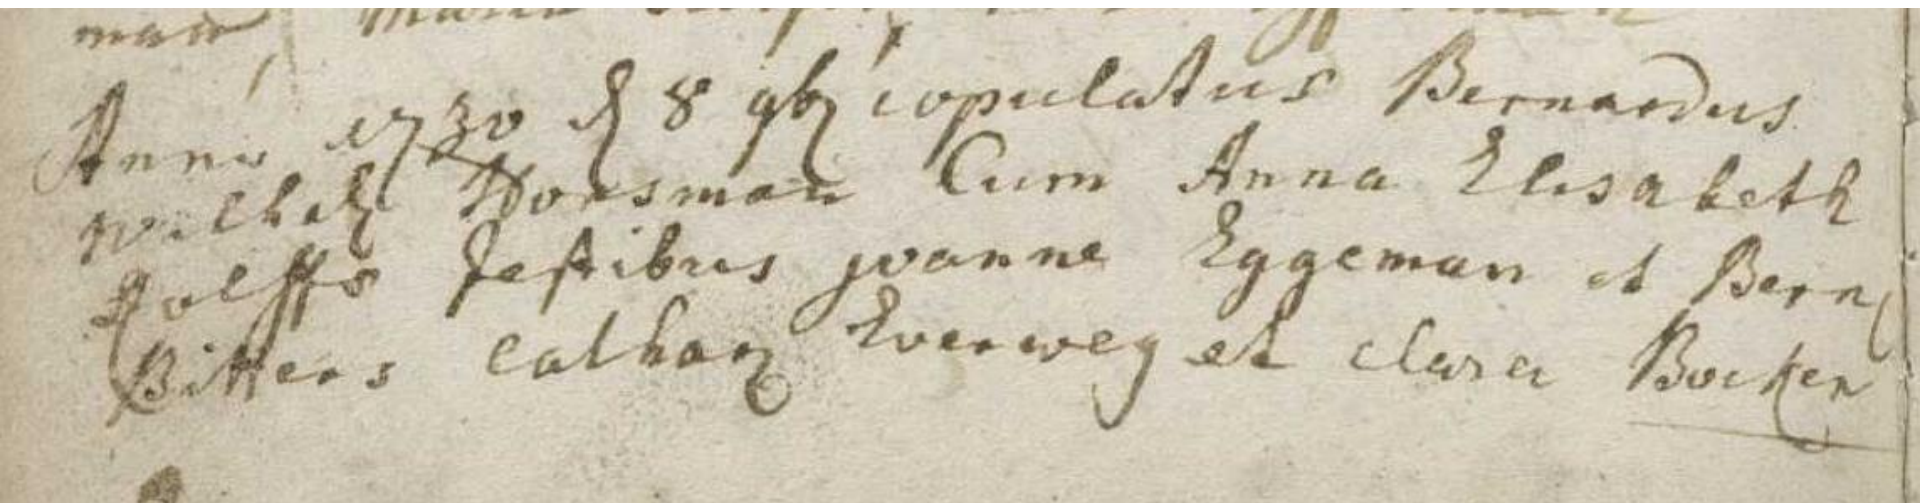 man
Anno 1730 d 8 9b copulatus Bernardus
wilhel Horsman Cum Anna Elisabeth
Rolffs testibus joanne Eggeman et Bern
Bitters cathar Everweg et clara Bocker